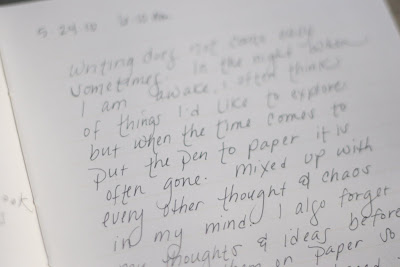 5.24.10
writing does not come easy
sometimes. in the night when
I am awake, I often think
of things I'd like to explore
but when the time comes to
put the pen to paper it is
often gone. mixed up with
every other thought & chaos
in my mind. I also forget
my thoughts & ideas before
them on paper so